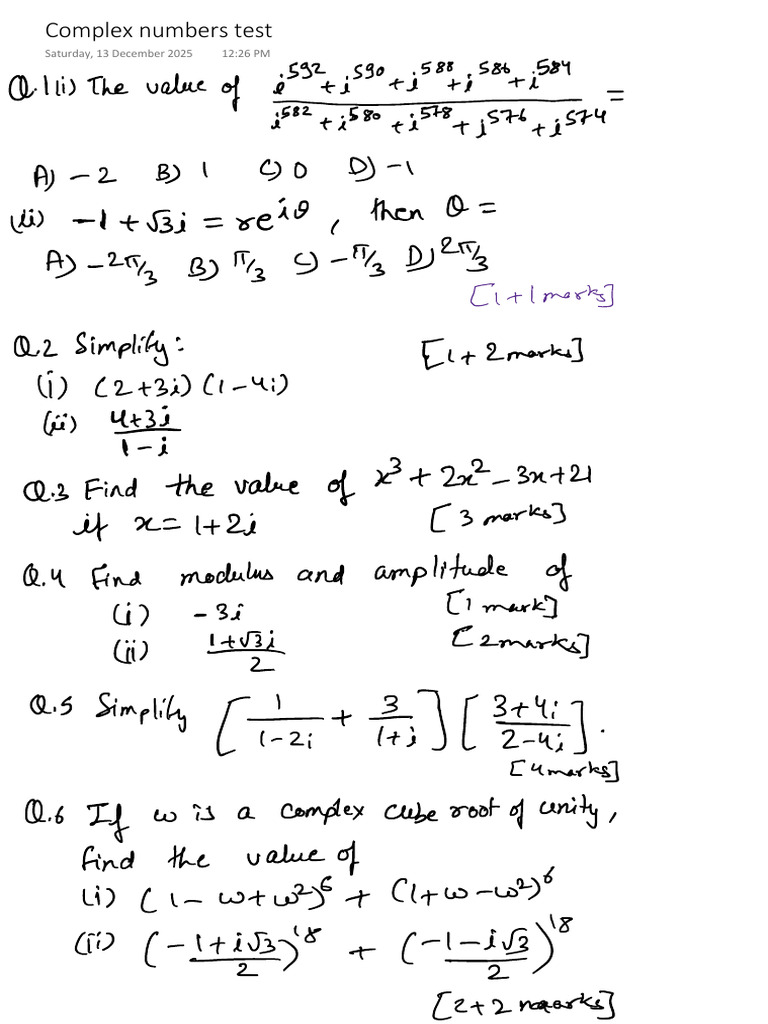 Complex numbers test
Saturday, 13 December 2025 12:26 PM
Q.1(i) The value of (i^592 + i^590 + i^588 + i^586 + i^584)/(i^582 + i^580 + i^578 + i^576 + i^574) =
A) -2 B) 1 C) 0 D) -1
(ii) -1 + √3i = re^iθ, then θ =
A) -2π/3 B) π/3 C) -π/3 D) 2π/3
[1+1 marks]
Q.2 Simplify: [1+2 marks]
(i) (2+3i)(1-4i)
(ii) (4+3i)/(1-i)
Q.3 Find the value of x³ + 2x² - 3x + 21
if x = 1+2i [3 marks]
Q.4 Find modulus and amplitude of
(i) -3i [1 mark]
(ii) (1+√3i)/2 [2 marks]
Q.5 Simplify [1/(1-2i) + 3/(1+i)] [(3+4i)/(2-4i)].
[4 marks]
Q.6 If ω is a complex cube root of unity,
find the value of
(i) (1-ω+ω²)^6 + (1+ω-ω²)^6
(ii) ((-1+i√3)/2)^18 + ((-1-i√3)/2)^18
[2+2 marks]